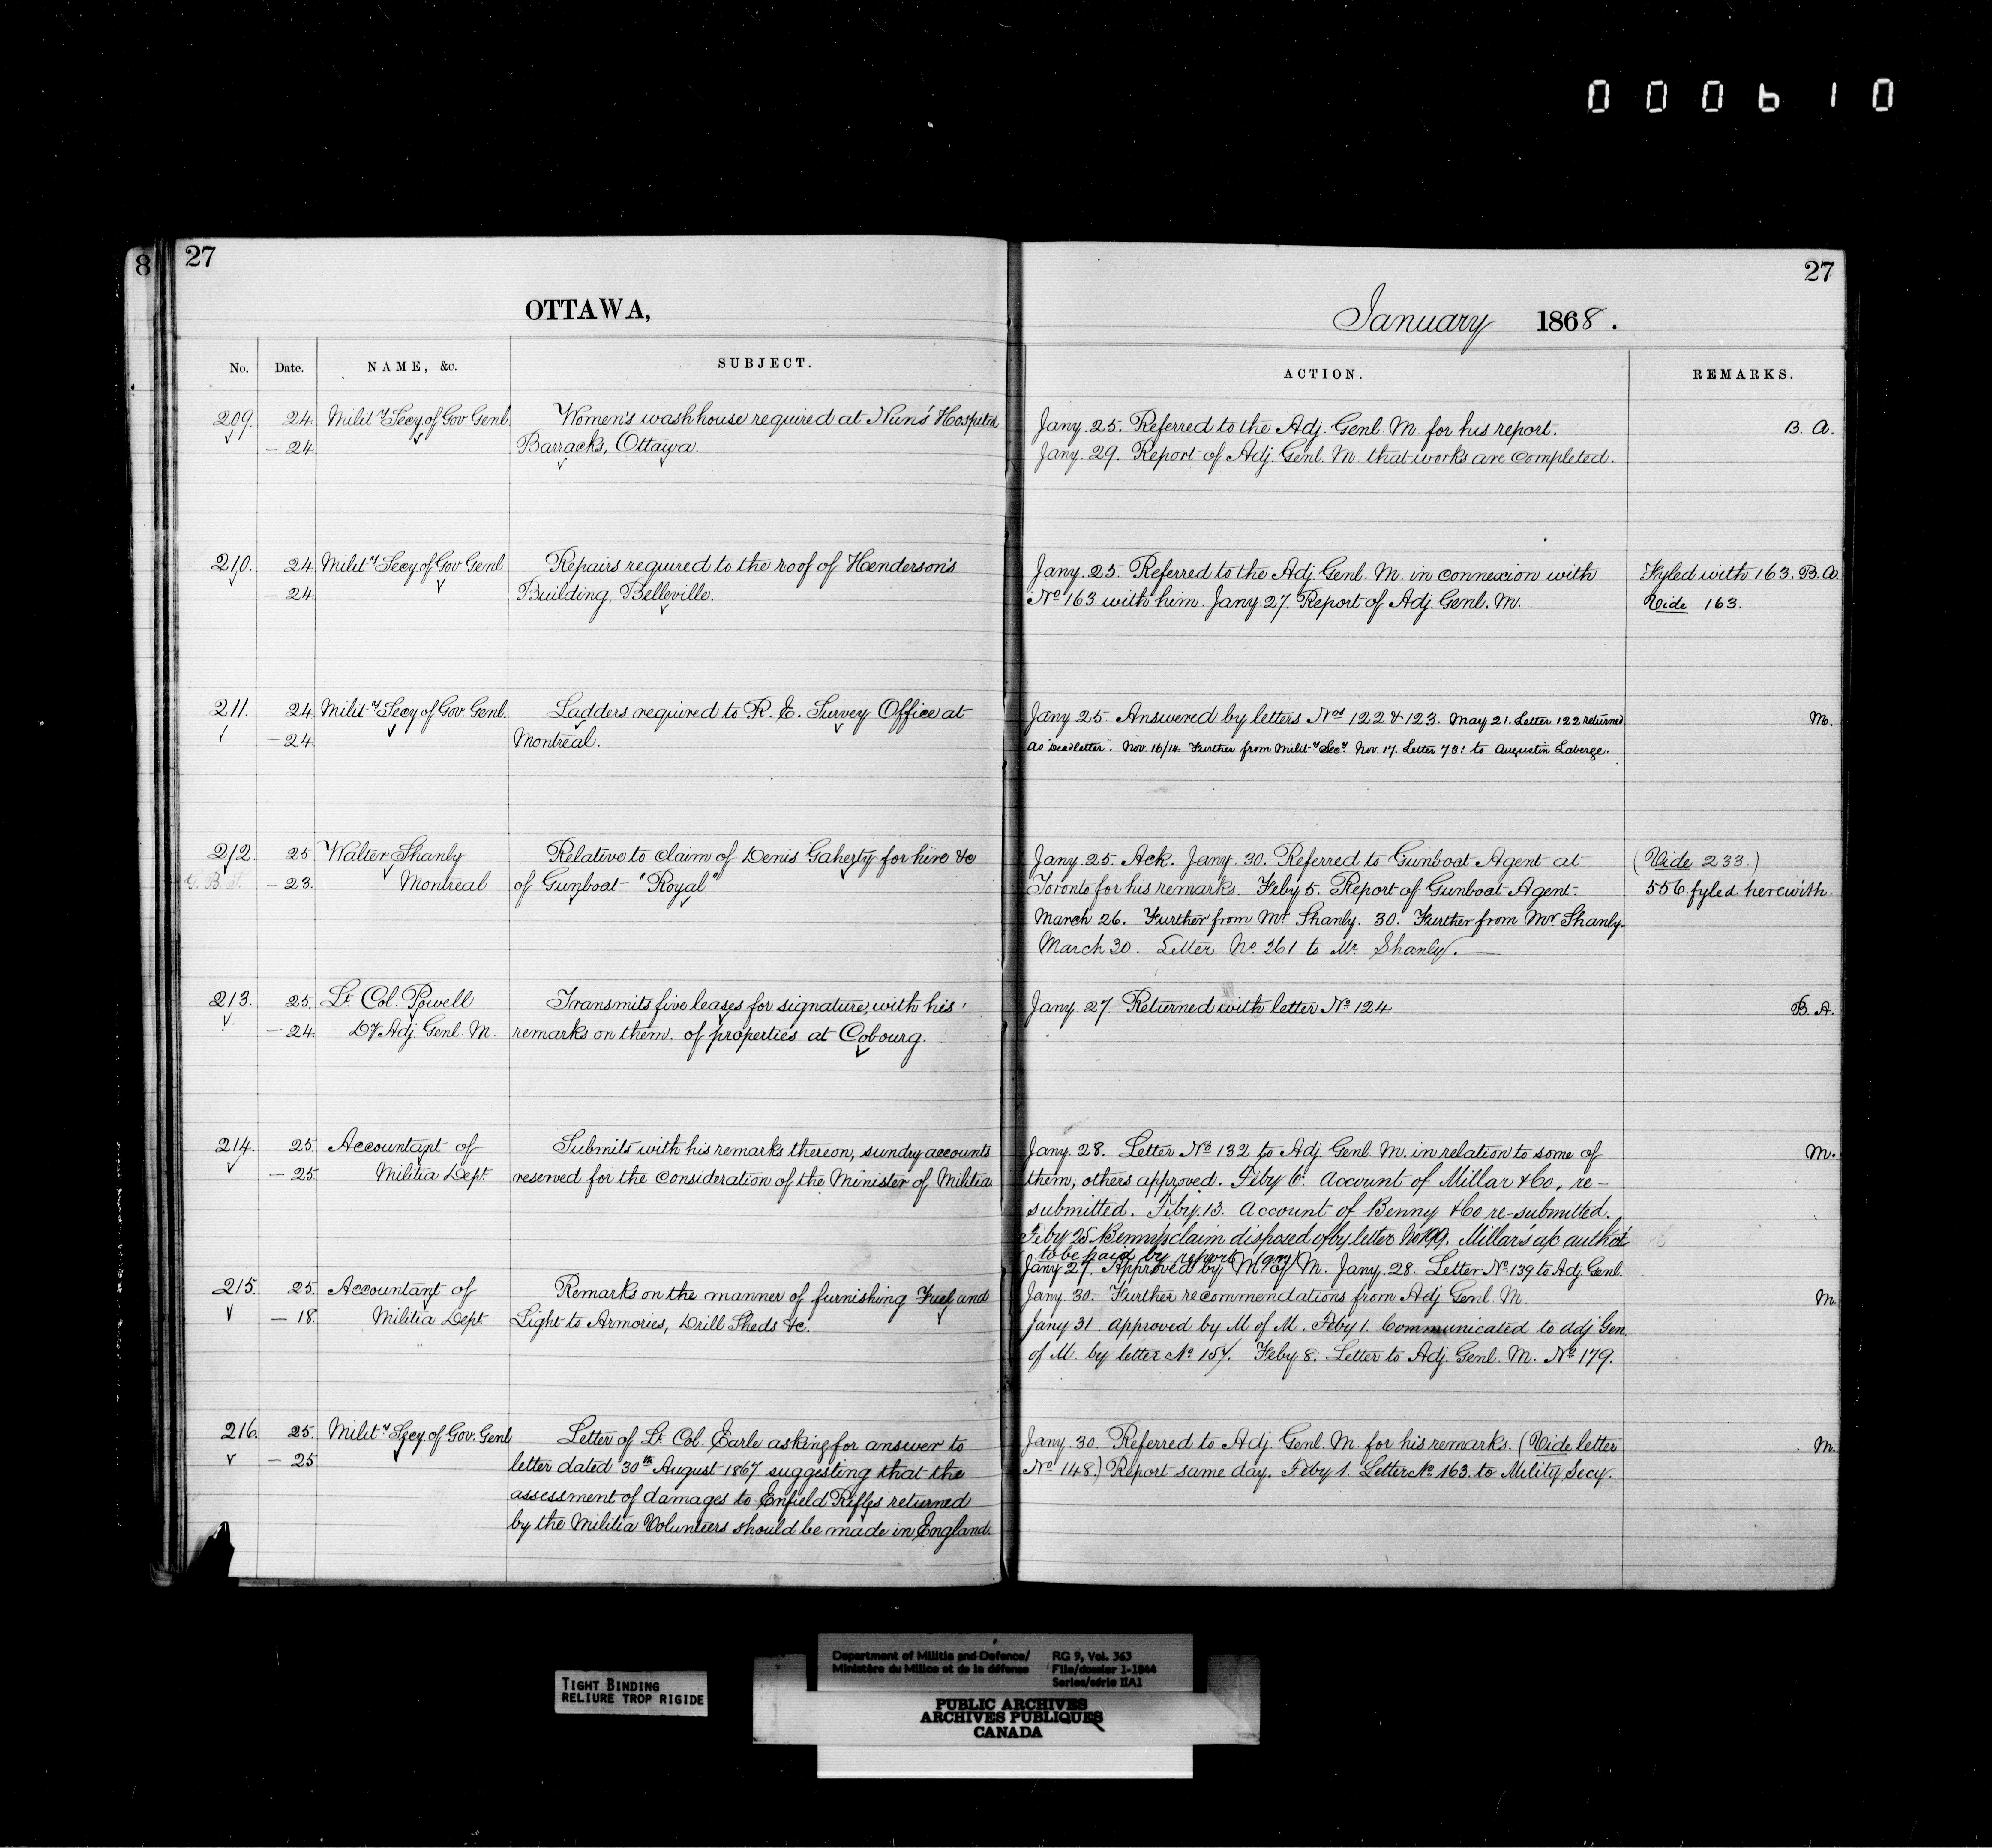 000610
8
27
27
OTTAWA,
January 1868.
No. Date. NAME, &c. SUBJECT. ACTION. REMARKS.
209. 24. Mility Secy of Gov. Genl. Women's washhouse required at Nun's Hospital Jany. 25. Referred to the Adj. Genl. M. for his report. B. A.
– 24. Barracks, Ottawa. Jany. 29. Report of Adj. Genl. M. that works are completed.
210. 24. Mility Secy of Gov Genl. Repairs required to the roof of Henderson's Jany. 25. Referred to the Adj. Genl. M. in connexion with Fyled with 163. B.A.
– 24. Building, Belleville. No 163 with him. Jany. 27. Report of Adj. Genl. M. Vide 163.
211. 24. Mility Secy of Gov. Genl. Ladders required to R. E. Survey Office at Jany 25. Answered by letters Nos 122 & 123. May 21. Letter 122 returned M.
– 24. Montreal. as "Dead letter". Nov. 16/14. Further from Mility Secy. Nov. 17. Letter 781 to Augustin Laberge.
212. 25. Walter Shanly Relative to claim of Denis Gaherty for hire &c Jany. 25. Ack. Jany. 30. Referred to Gunboat Agent at (Vide 233.)
– 23. Montreal of Gunboat "Royal" Toronto for his remarks. Feby 5. Report of Gunboat Agent. 556 fyled herewith.
March 26. Further from Mr Shanly. 30. Further from Mr Shanly.
March 30. Letter No. 261 to Mr. Shanly.
213. 25. Lt. Col. Powell Transmits five leases for signature, with his Jany. 27. Returned with letter No 124. B. A.
– 24. Dy Adj. Genl. M. remarks on them. of properties at Cobourg.
214. 25. Accountant of Submits with his remarks thereon, sundry accounts Jany. 28. Letter No 132 to Adj. Genl. M. in relation to some of M.
– 25. Militia Dept. reserved for the consideration of the Minister of Militia them; others approved. Feby 6. Account of Millar & Co, re-
submitted. Feby. 13. Account of Benny & Co re-submitted.
Feby 25 Benny's claim disposed of by letter No 199. Millar's a/c auth'd
to be paid by report
215. 25. Accountant of Remarks on the manner of furnishing Fuel and Jany 27. Approved by M of M. Jany. 28. Letter No. 139 to Adj. Genl.
Jany. 30. Further recommendations from Adj. Genl. M. M.
– 18. Militia Dept Light to Armories, Drill Sheds &c. Jany 31. approved by M of M. Feby 1. Communicated to adj Gen.
of M. by letter No. 157. Feby 8. Letter to Adj. Genl. M. No 179.
216. 25. Mility Secy of Gov. Genl Letter of Lt. Col. Earle asking for answer to Jany. 30. Referred to Adj. Genl. M. for his remarks. (Vide letter M.
– 25 letter dated 30th August 1867 suggesting that the No 148.) Report same day. Feby 1. Letter No. 163. to Mility Secy.
assessment of damages to Enfield Rifles returned
by the Militia Volunteers should be made in England.
TIGHT BINDING
RELIURE TROP RIGIDE
Department of Militia and Defence/ RG 9, Vol. 363
Ministère du Milice et de la défense File/dossier 1-1844
Series/série IIA1
PUBLIC ARCHIVES
ARCHIVES PUBLIQUES
CANADA